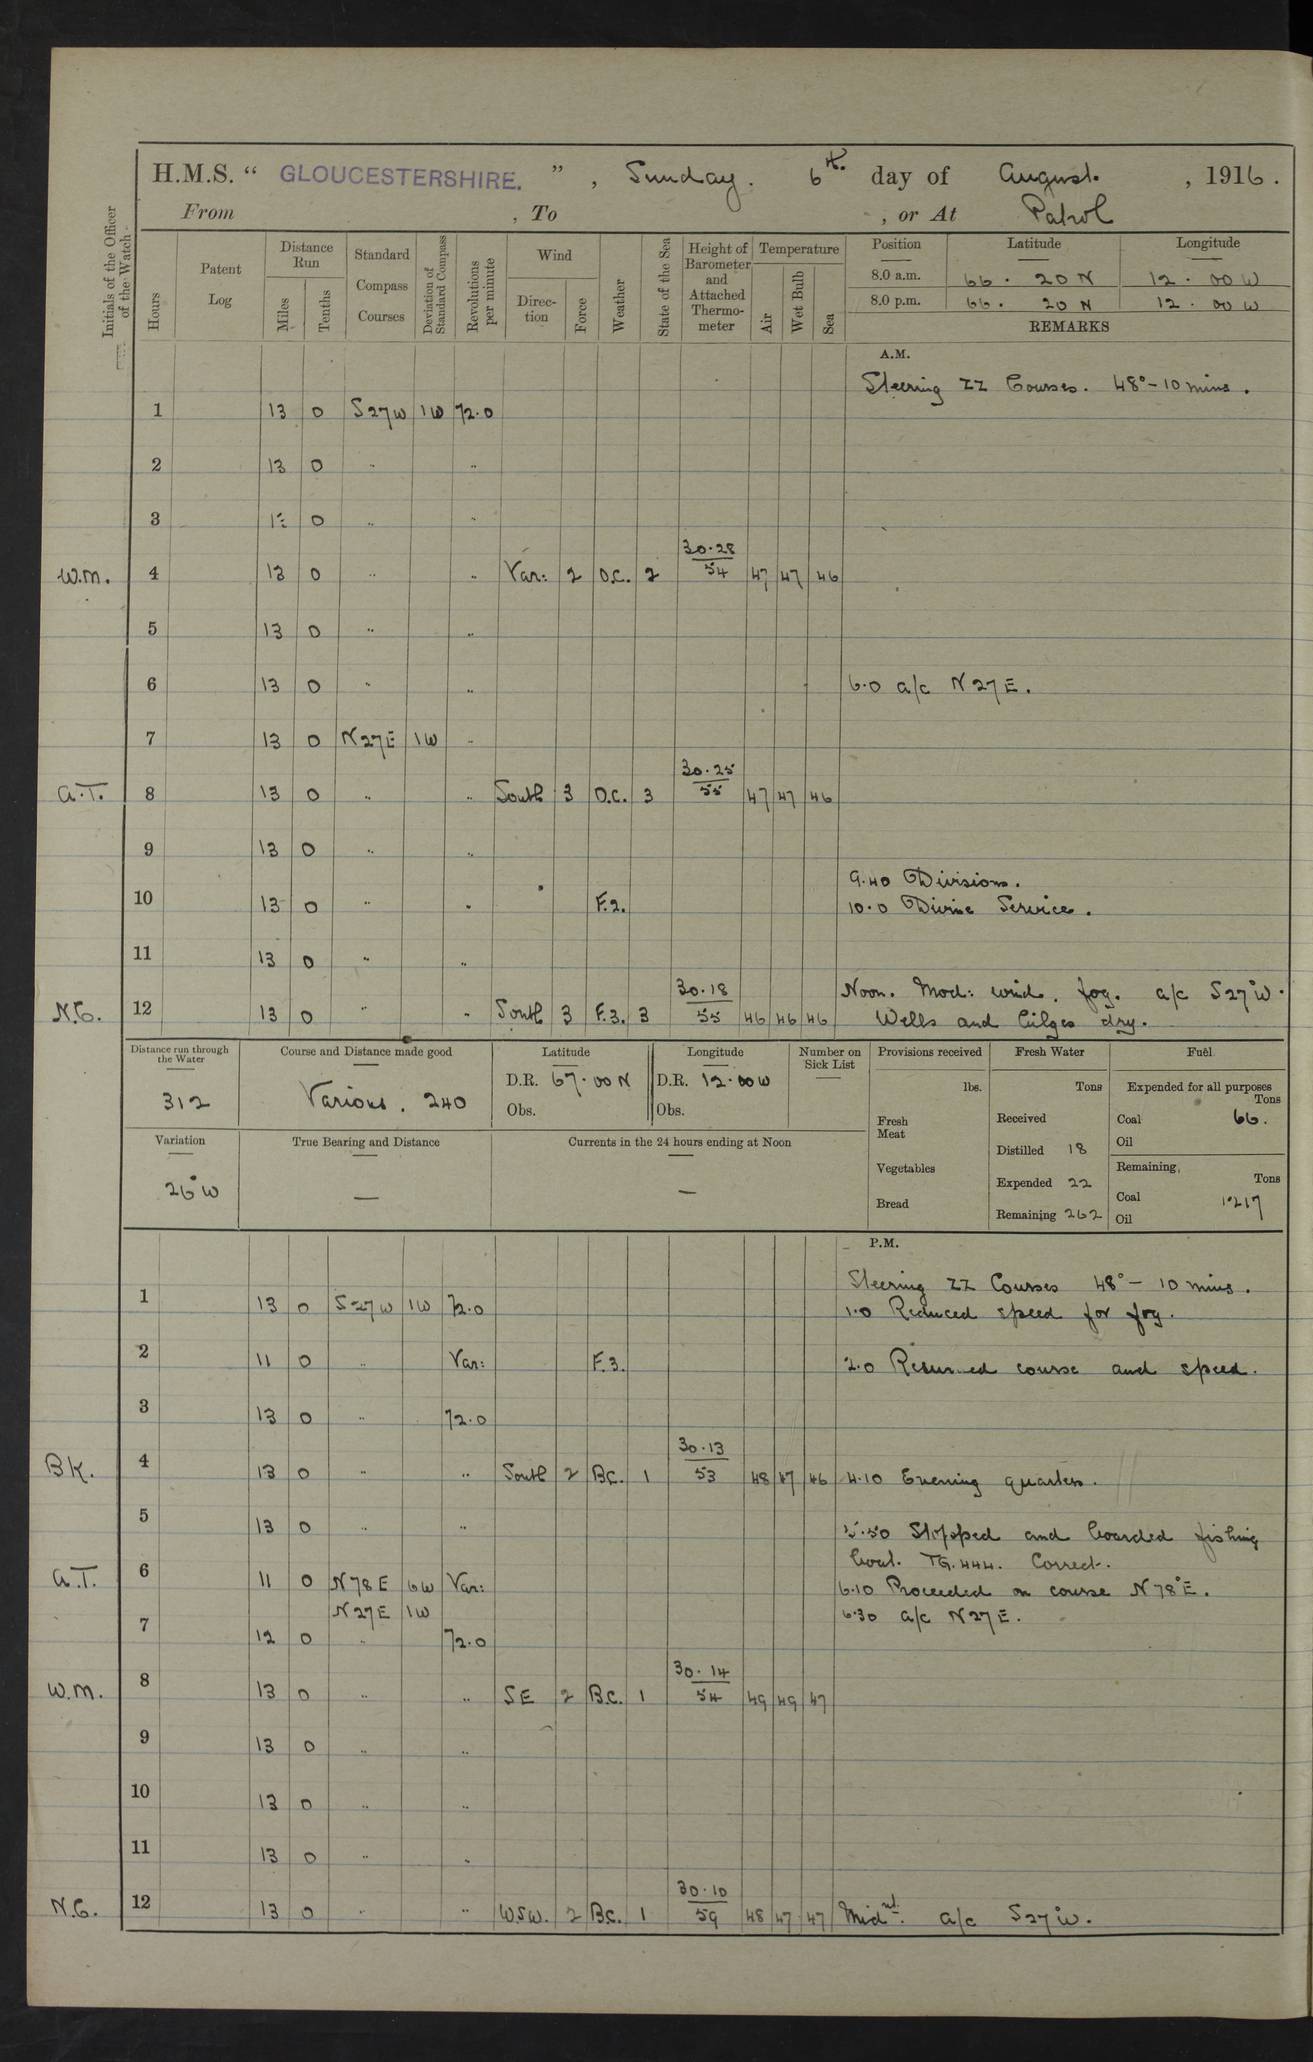 H.M.S. “ GLOUCESTERSHIRE. ” , Sunday. 6th. day of August. , 1916.
From , To , or At Patrol
Initials of the Officer of the Watch
Hours
Patent Log
Distance Run
Miles
Tenths
Standard Compass Courses
Deviation of Standard Compass
Revolutions per minute
Wind
Direc- tion
Force
Weather
State of the Sea
Height of Barometer and Attached Thermo- meter
Temperature
Air
Wet Bulb
Sea
Position Latitude Longitude
8.0 a.m. 66 . 20 N 12 . 00 W
8.0 p.m. 66 . 20 N 12 . 00 W
REMARKS
A.M.
Steering ZZ Courses. 48° – 10 mins.
1 13 0 S 27 W 1 W 72.0
2 13 0 " "
3 13 0 " "
W.M. 4 13 0 " " Var: 2 O.C. 2 30.28 54 47 47 46
5 13 0 " "
6 13 0 " " 6.0 a/c N 27 E.
7 13 0 N 27 E 1 W "
A.T. 8 13 0 " " South 3 O.C. 3 30.25 55 47 47 46
9 13 0 " "
9.40 Divisions.
10 13 0 " " F.2. 10.0 Divine Service.
11 13 0 " "
Noon. Mod: wind. fog. a/c S 27° W.
12 13 0 " " South 3 F.3. 3 30.18 55 46 46 46 Wells and bilges dry.
Distance run through the Water
312
Course and Distance made good
Various. 240
Latitude
D.R. 67.00 N
Obs.
Longitude
D.R. 12.00 W
Obs.
Number on Sick List
Provisions received
lbs.
Fresh Meat
Vegetables
Bread
Fresh Water
Tons
Received
Distilled 18
Expended 22
Remaining 262
Fuel
Expended for all purposes
Tons
Coal 66.
Oil
Remaining,
Tons
Coal 1217
Oil
Variation
26° W
True Bearing and Distance
—
Currents in the 24 hours ending at Noon
—
P.M.
Steering ZZ Courses 48° – 10 mins.
1 13 0 S 27 W 1 W 72.0 1.0 Reduced speed for fog.
2 11 0 " Var: F.3. 2.0 Resumed course and speed.
3 13 0 " 72.0
B.K. 4 13 0 " " South 2 B.C. 1 30.13 53 48 47 46 4.10 Evening quarters.
5 13 0 " " 5.50 Stopped and boarded fishing
boat. TG. 444. Correct.
A.T. 6 11 0 N 78 E 6 W Var: 6.10 Proceeded on course N 78° E.
N 27 E 1 W 6.30 a/c N 27 E.
7 12 0 " 72.0
W.M. 8 13 0 " " SE 2 B.C. 1 30.14 54 49 49 47
9 13 0 " "
10 13 0 " "
11 13 0 " "
12 13 0 " " W.S.W. 2 B.C. 1 30.10 59 48 47 47 Midnt. a/c S 27° W.